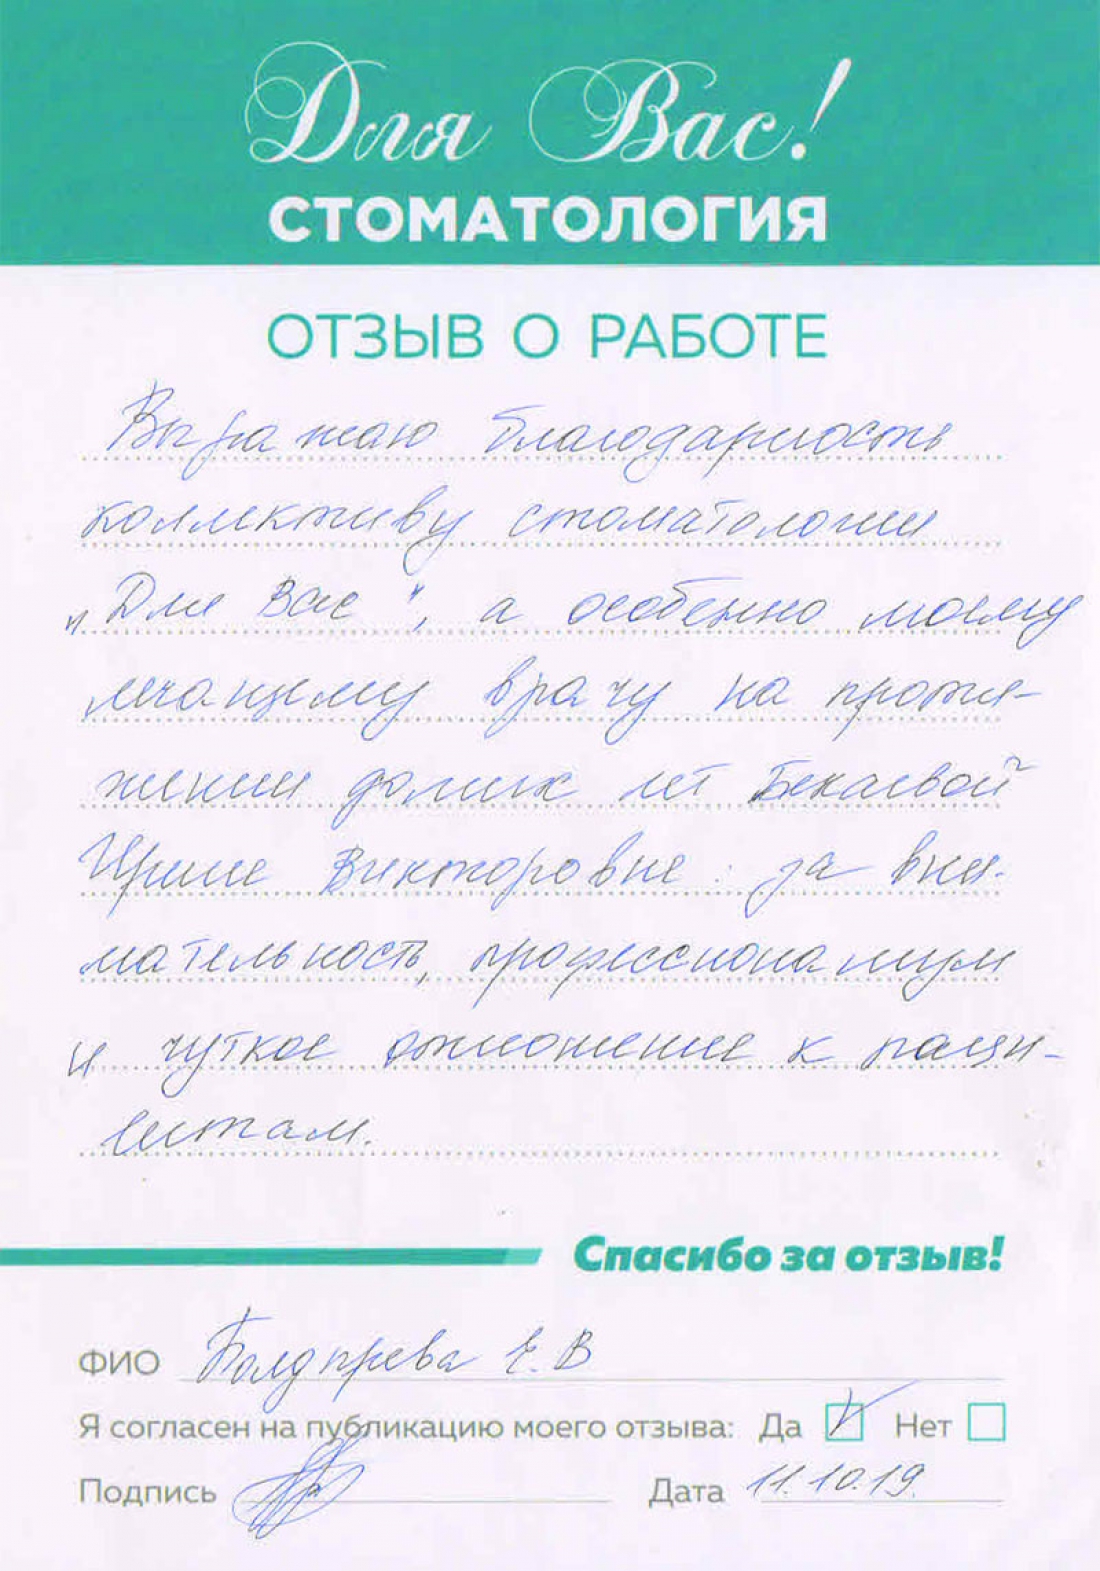 Для Вас!
СТОМАТОЛОГИЯ
ОТЗЫВ О РАБОТЕ
Выражаю благодарность
коллективу стоматологии
"Для Вас", а особенно моему
лечащему врачу на протя-
жении долгих лет Бекаевой
Ирине Викторовне: за вни-
мательность, профессионализм
и чуткое отношение к паци-
ентам.
Спасибо за отзыв!
ФИО Е.В
Я согласен на публикацию моего отзыва: Да V Нет
Подпись Дата 11.10.19.